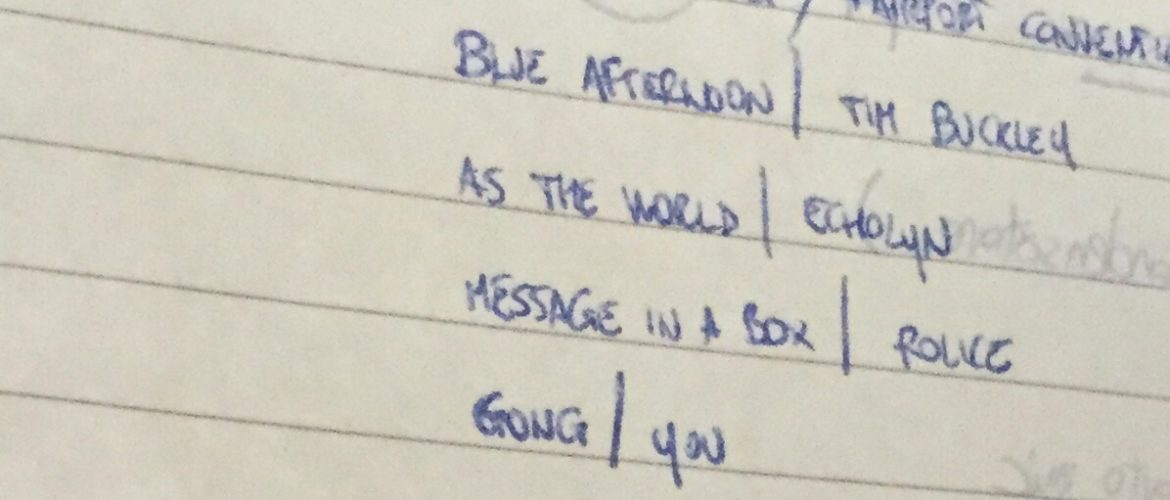 CONVENTI
BLUE AFTERNOON | TIM BUCKLEY
AS THE WORLD | ECHOLYN
MESSAGE IN A BOX | POLICE
GONG | YOU